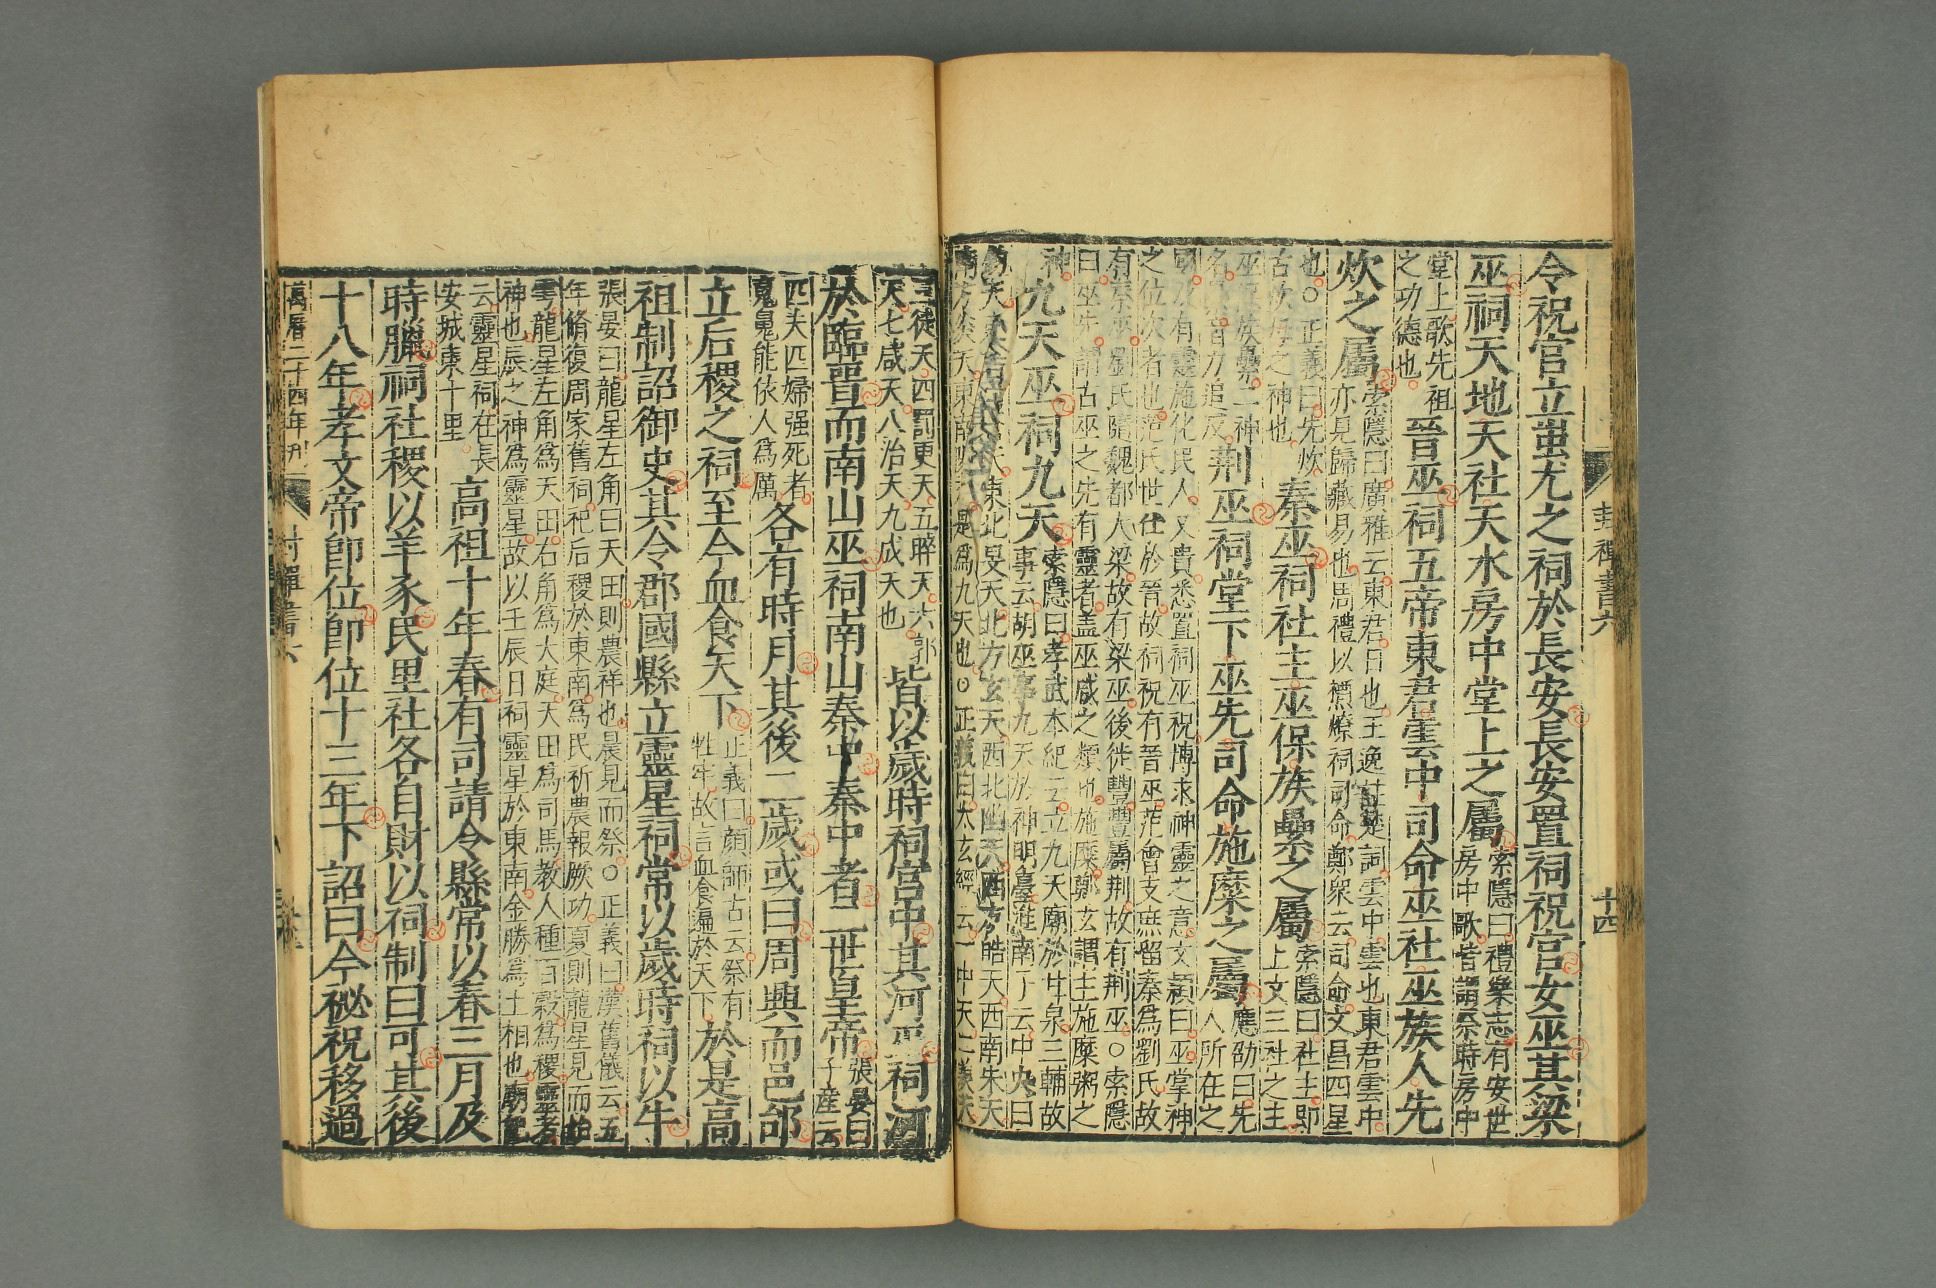 封禪書六
十四
令祝官立蚩尤之祠於長安長安置祠祝官女巫其梁
巫祠天地天社天水房中堂上之屬索隱曰禮樂志有安世房中歌皆謂祭時房中
堂上歌先祖之功德也晉巫祠五帝東君雲中司命巫社巫族人先
炊之屬索隱曰廣雅云東君日也王逸註楚詞雲中雲也東君雲中亦見歸藏易也周禮以槱燎祠司命鄭衆云司命文昌四星
也○正義曰先炊古炊母之神也秦巫祠社主巫保族纍之屬索隱曰社主即上文三社之主
巫保族纍二神名荆巫祠堂下巫先司命施糜之屬應劭曰先人所在之
國及有靈施化民人又貴悉置祠巫祝博求神靈之意文穎曰巫掌神之位次者也范氏世仕於晉故祠祝有晉巫范會支庶留秦爲劉氏故
有秦巫劉氏隨魏都大梁故有梁巫後徙豐豐屬荆故有荆巫○索隱曰巫先謂古巫之先有靈者盖巫咸之類也施糜鄭玄謂主施糜粥之
神九天巫祠九天索隱曰孝武本紀云立九天廟於甘泉三輔故事云胡巫事九天於神明臺淮南子云中央曰
東北旻天北方玄天西北幽天西方皓天西南朱天是爲九天也○正義曰太玄經云一中天二羡天
三徒天四罰更天五睟天六郭天七咸天八治天九成天也皆以歲時祠宮中其河巫祠河
於臨晉而南山巫祠南山秦中秦中者二世皇帝張晏曰子産云
匹夫匹婦强死者䰟魄能依人爲厲各有時月其後二歲或曰周興而邑邰
立后稷之祠至今血食天下正義曰顔師古云祭有牲牢故言血食遍於天下於是高
祖制詔御史其令郡國縣立靈星祠常以歲時祠以牛
張晏曰龍星左角曰天田則農祥也晨見而祭○正義曰漢舊儀云五年脩復周家舊祠祀后稷於東南爲民祈農報厥功夏則龍星見而始
雩龍星左角爲天田右角爲大庭天田爲司馬教人種百穀爲稷靈者神也辰之神爲靈星故以壬辰日祠靈星於東南金勝爲土相也廟記
云靈星祠在長安城東十里高祖十年春有司請令縣常以春三月及
時臘祠社稷以羊豕民里社各自財以祠制曰可其後
十八年孝文帝即位即位十三年下詔曰今祕祝移過
萬曆二十四年刊
封禪書六